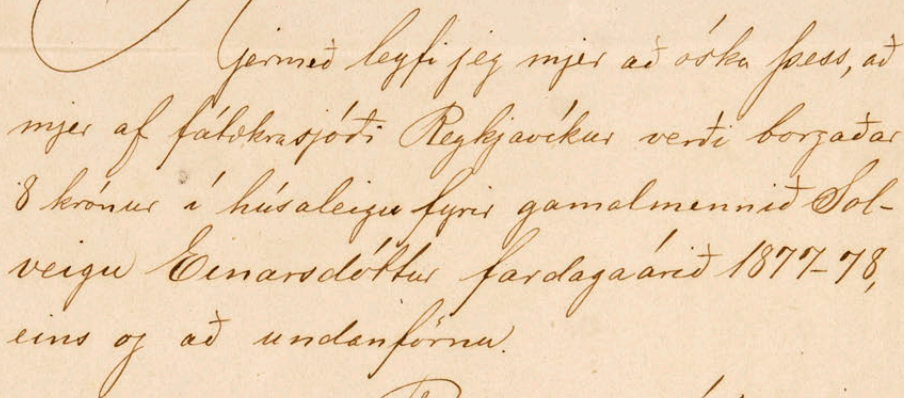 Hjermeð leyfi jeg mjer að óska þess, að
mjer af fátækrasjóði Reykjavíkur verði borgaðar
8 krónur í húsaleigu fyrir gamalmennið Sol-
veigu Einarsdóttur fardagaárið 1877-78,
eins og að undanförnu.